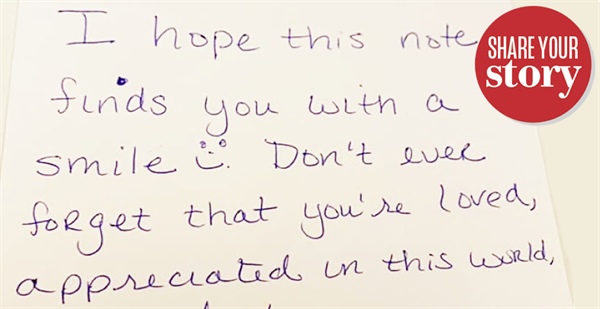 I hope this note
finds you with a
smile Don't ever
forget that you're loved,
appreciated in this world,
SHARE YOUR
story